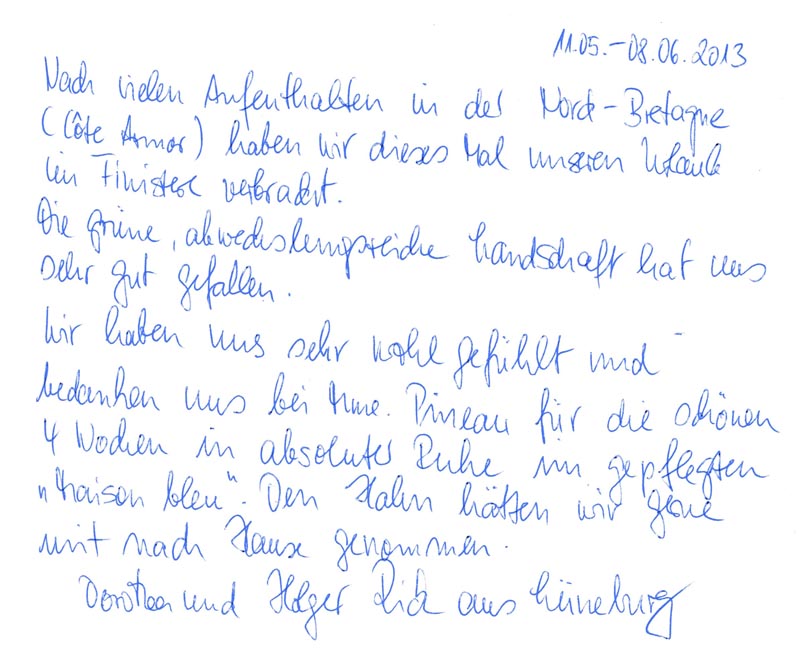 11.05.-08.06.2013
Nach vielen Aufenthalten in der Nord-Bretagne
(Côte Armor) haben wir dieses Mal unseren Urlaub
im Finistere verbracht.
Die grüne, abwechslungsreiche Landschaft hat uns
sehr gut gefallen.
Wir haben uns sehr wohl gefühlt und
bedanken uns bei Mme. Pineau für die schönen
4 Wochen in absoluter Ruhe im gepflegten
"Maison bleu". Den Hahn hätten wir gerne
mit nach Hause genommen.
Dorothea und Holger aus Lüneburg